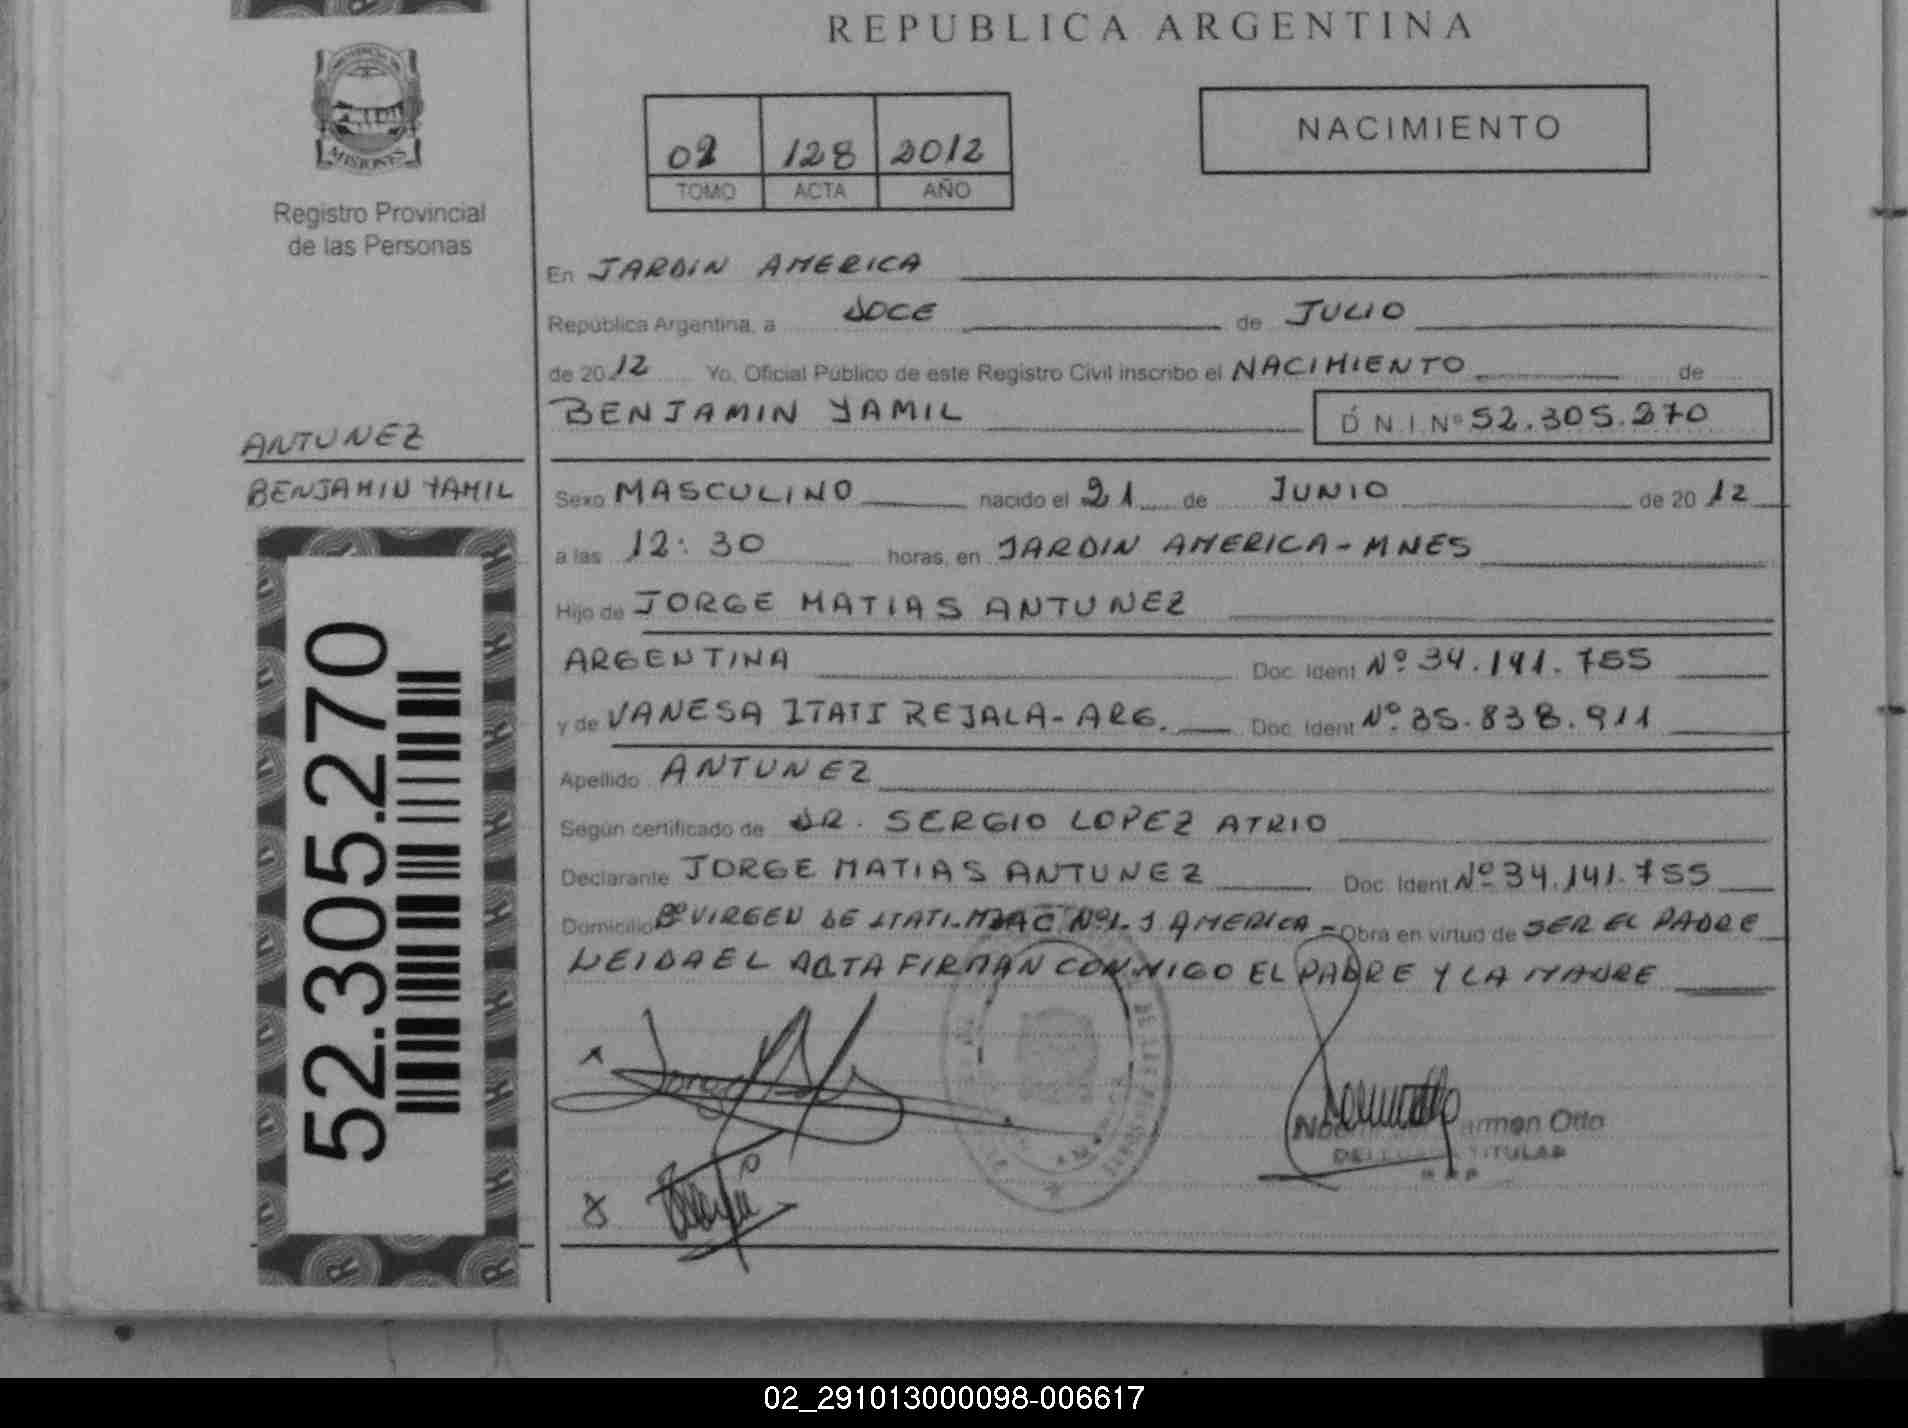 REPUBLICA ARGENTINA
MISIONES
Registro Provincial
de las Personas
02 128 2012
TOMO ACTA AÑO
NACIMIENTO
En JARDIN AMERICA
República Argentina, a DOCE de JULIO
de 2012 Yo, Oficial Público de este Registro Civil inscribo el NACIMIENTO de
BENJAMIN YAMIL D.N.I. Nº 52.305.270
ANTUNEZ
BENJAMIN YAMIL
52.305.270
Sexo MASCULINO nacido el 21 de JUNIO de 2012
a las 12:30 horas, en JARDIN AMERICA-MNES
Hijo de JORGE MATIAS ANTUNEZ
ARGENTINA Doc. Ident Nº 34.141.755
y de VANESA ITATI REJALA-ARG. Doc. Ident Nº 35.838.911
Apellido ANTUNEZ
Según certificado de DR. SERGIO LOPEZ ATRIO
Declarante JORGE MATIAS ANTUNEZ Doc. Ident Nº 34.141.755
Domicilio Bº VIRGEN DE ITATI. Nº1. J AMERICA - Obra en virtud de SER EL PADRE
LEIDA EL ACTA FIRMAN CONMIGO EL PADRE Y LA MADRE
Otto
TITULAR
02_291013000098-006617